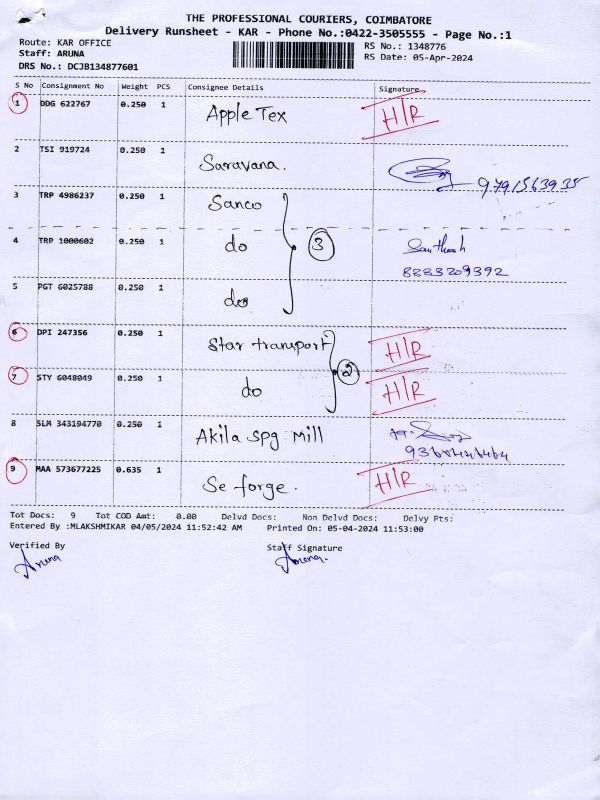 THE PROFESSIONAL COURIERS, COIMBATORE
Delivery Runsheet - KAR - Phone No.:0422-3505555 - Page No.:1
Route: KAR OFFICE
RS No.: 1348776
Staff: ARUNA
RS Date: 05-Apr-2024
DRS No.: DCJB134877601
S No Consignment No Weight PCS Consignee Details Signature
1 DDG 622767 0.250 1 Apple Tex H/R
2 TSI 919724 0.250 1 Saravana. 9791563935
3 TRP 4986237 0.250 1 Sanco
4 TRP 1000602 0.250 1 do 3 Santhosh
8883209392
5 PGT 6025788 0.250 1 do
6 DPI 247356 0.250 1 Star transport H/R
7 STY 6048049 0.250 1 do 2 H/R
8 SLM 343194770 0.250 1 Akila spg mill
9 MAA 573677225 0.635 1 Se forge. H/R
Tot Docs: 9 Tot COD Amt: 0.00 Delvd Docs: Non Delvd Docs: Delvy Pts:
Entered By :MLAKSHMIKAR 04/05/2024 11:52:42 AM Printed On: 05-04-2024 11:53:00
Verified By Staff Signature
Aruna Aruna.